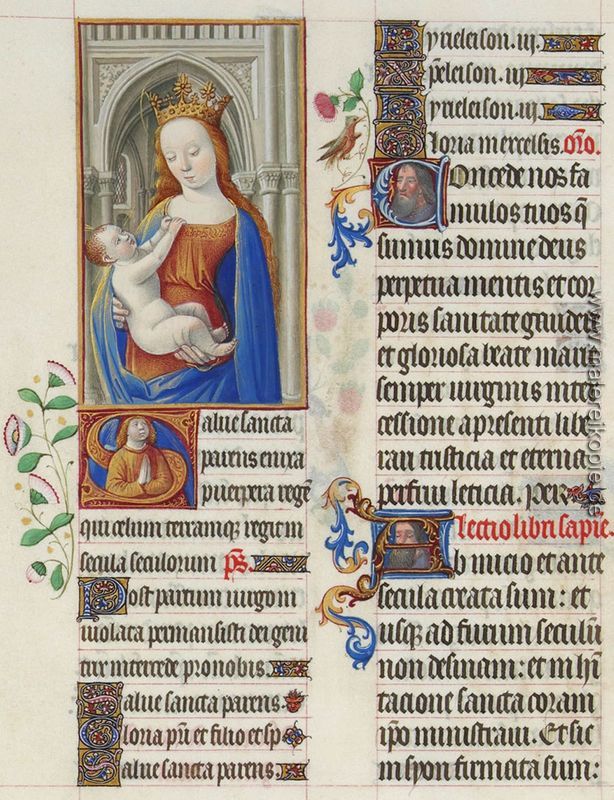 Salve sancta
parens enixa
puerpera regē
qui celum terramq; regit in
secula seculorum p̄s.
Post partum virgo in
violata permansisti dei geni
trix intercede pro nobis.
Salve sancta parens.
Gloria pr̄i et filio et sp̄
Salve sancta parens.
Kyrieleison .iij.
Xp̄eleison .iij
Kyrieleison .iij.
Gloria in excelsis. or̄o.
Concede nos fa
mulos tuos q̄
sumus domine deus
perpetua mentis et cor
poris sanitate gaudere
et gloriosa beate marie
semper virginis inter
cessione a presenti libe
rari tristicia et eterna
perfrui leticia. Per
lectio libri sapie.
Ab inicio et ante
secula creata sum: et
usq; ad futurum seculū
non desinam: et in hı̄
tacione sancta coram
ip̄o ministravi. Et sic
in syon firmata sum: